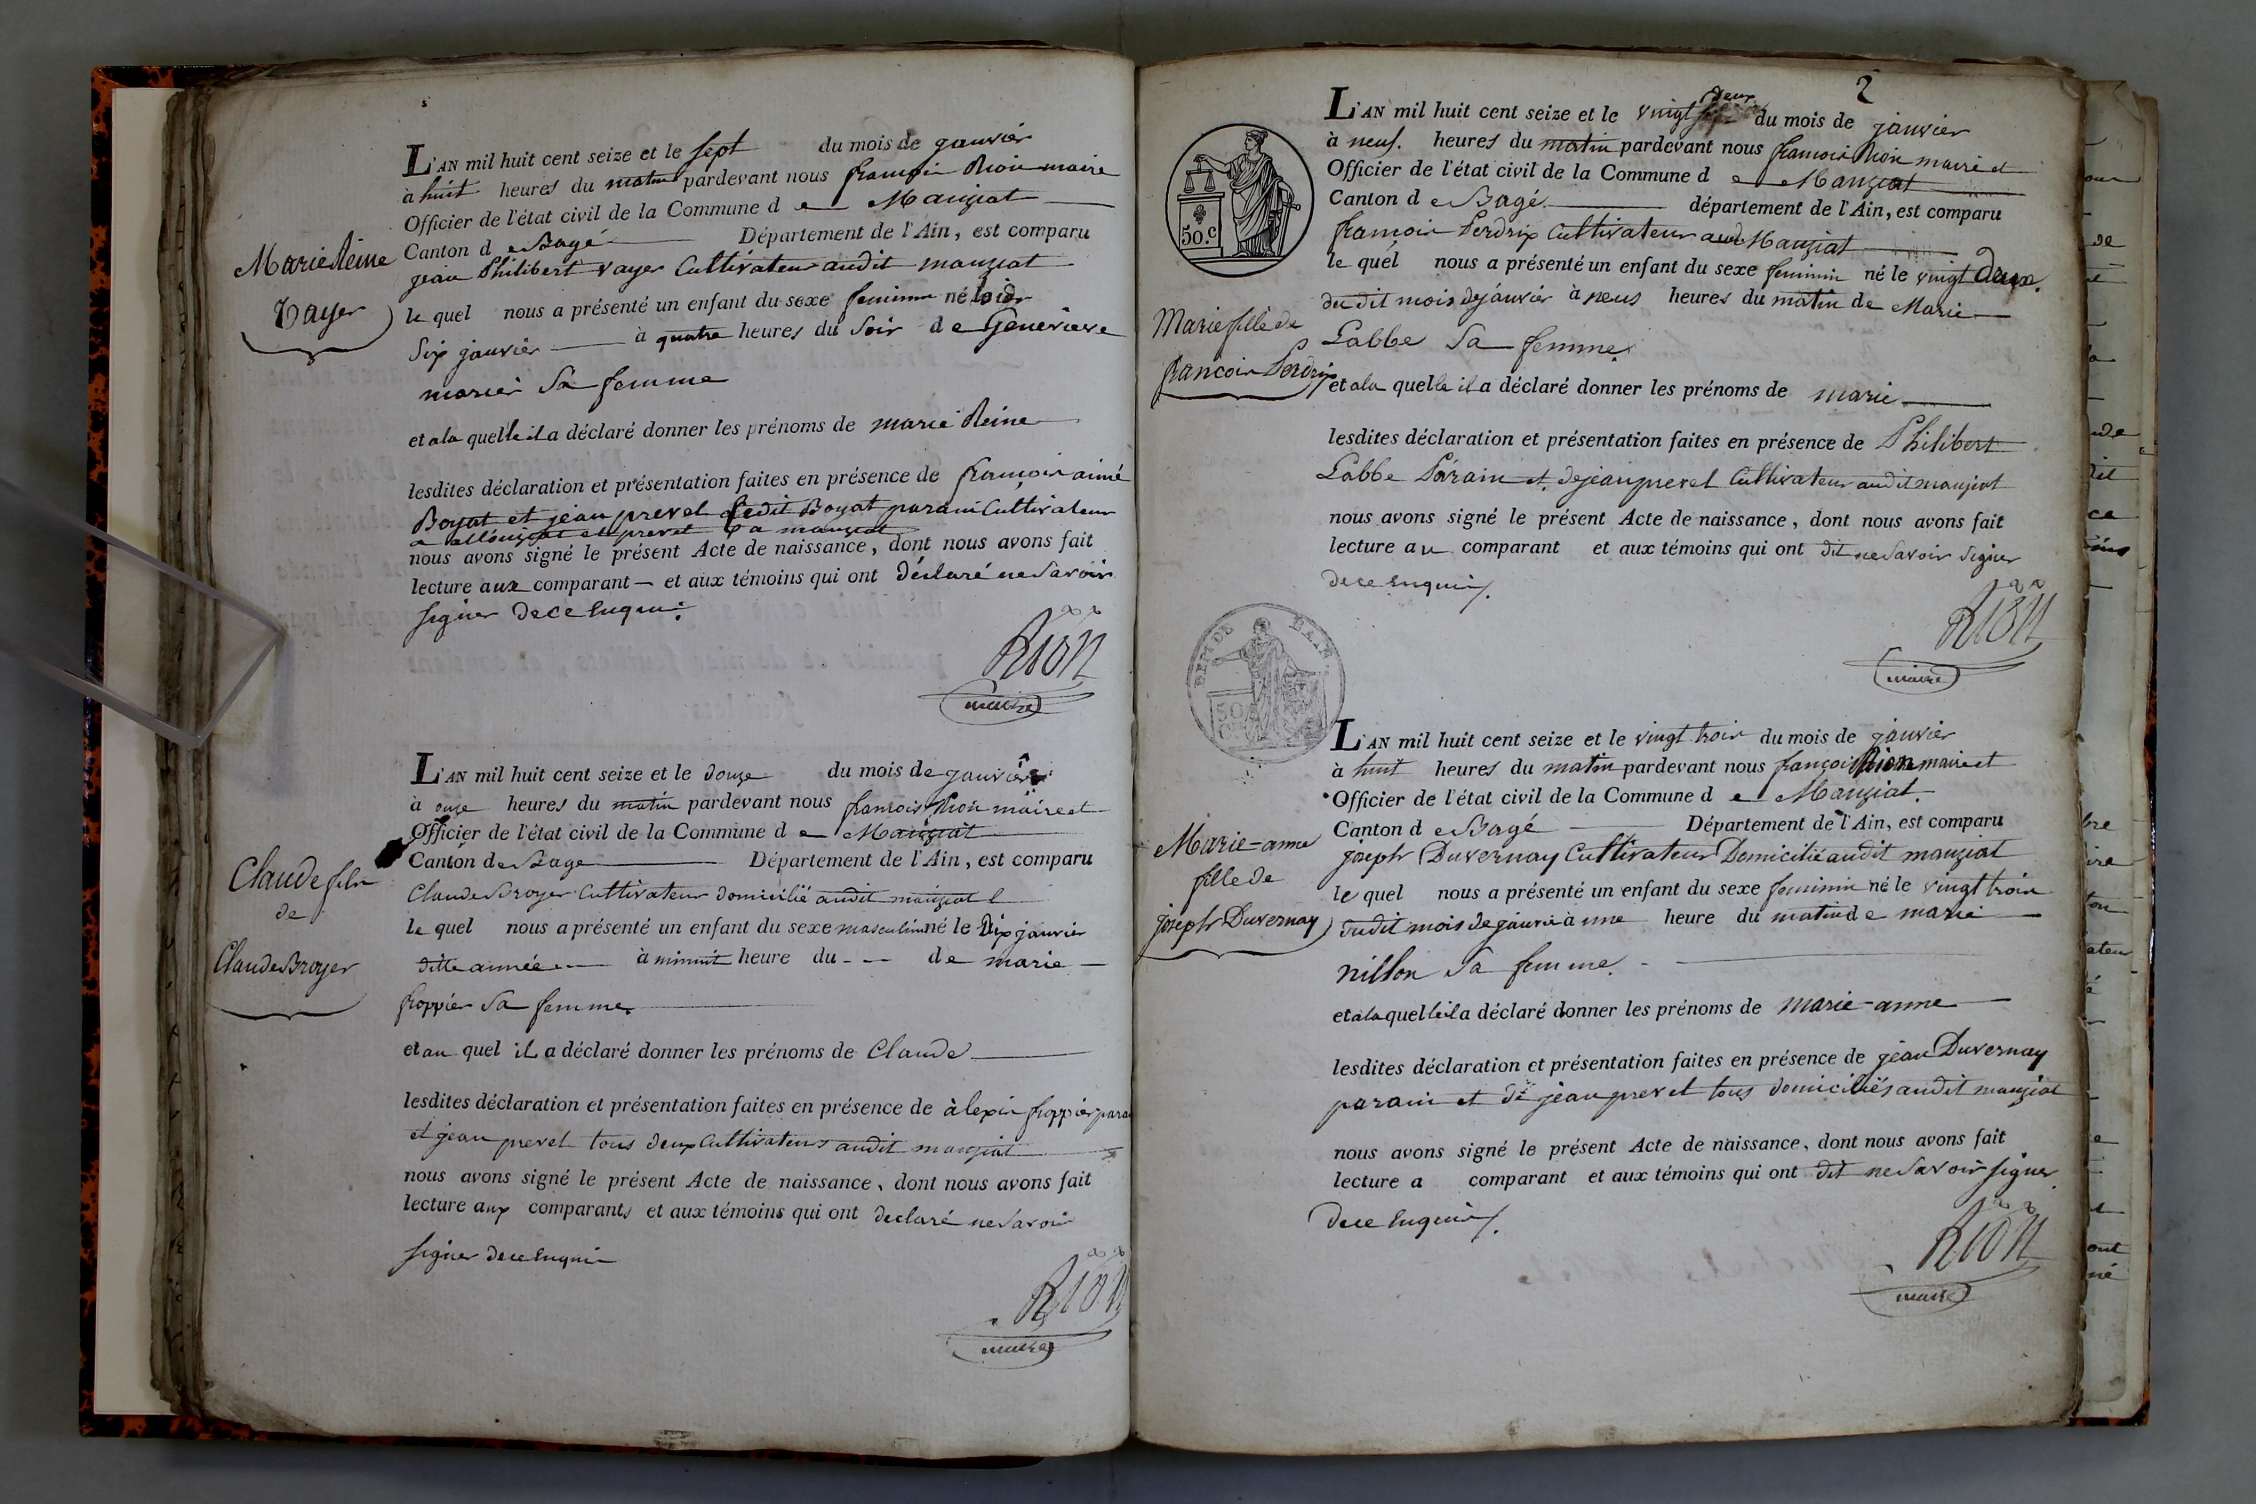 L'AN mil huit cent seize et le sept du mois de janvier
à huit heures du matin pardevant nous françois Rion maire
Officier de l'état civil de la Commune de Manziat
Canton de Bagé Département de l'Ain, est comparu
jean Philibert vayer Cultivateur audit manziat
le quel nous a présenté un enfant du sexe feminin né le
Six janvier à quatre heures du Soir de Genevieve
marier Sa femme
et a la quelle il a déclaré donner les prénoms de marie Reine
lesdites déclaration et présentation faites en présence de françois aimé
Boyat et jean prevel ledit Boyat parain Cultivateur
et prevel a manziat
nous avons signé le présent Acte de naissance, dont nous avons fait
lecture aux comparant et aux témoins qui ont déclaré ne Savoir
signer de ce Enquis
RION
maire
Marie Reine
Vayer
L'AN mil huit cent seize et le douze du mois de janvier
à onze heures du matin pardevant nous francois Rion maire et
Officier de l'état civil de la Commune de Manziat
Canton de Bage Département de l'Ain, est comparu
Claude Broyer Cultivateur domicilié audit manziat
le quel nous a présenté un enfant du sexe masculin né le Dix janvier
ditte année à minuit heure du - - de marie
froppier Sa femme
et au quel il a déclaré donner les prénoms de Claude
lesdites déclaration et présentation faites en présence de àlexis froppier parai
et jean prevel tous deux Cultivateurs audit manziat
nous avons signé le présent Acte de naissance, dont nous avons fait
lecture aux comparants et aux témoins qui ont declaré ne Savoir
signer de ce Enquis
RION
maire
Claude fils
de
Claude Broyer
2
L'AN mil huit cent seize et le vingt deux du mois de janvier
à neuf heures du matin pardevant nous francois Rion maire et
Officier de l'état civil de la Commune de Manziat
Canton de Bagé département de l'Ain, est comparu
francois Perdrix Cultivateur aud Manziat
le quel nous a présenté un enfant du sexe feminin né le vingt Deux
du dit mois de janvier à neuf heures du matin de Marie
Labbe Sa femme
et a la quelle il a déclaré donner les prénoms de marie
lesdites déclaration et présentation faites en présence de Philibert
Labbe Parain et de jean prevel Cultivateur audit manziat
nous avons signé le présent Acte de naissance, dont nous avons fait
lecture au comparant et aux témoins qui ont dit ne Savoir Signer
de ce Enquis
RION
maire
50.c
Marie fille de
francois Perdrix
50
C
L'AN mil huit cent seize et le vingt trois du mois de janvier
à huit heures du matin pardevant nous françois Rion maire et
Officier de l'état civil de la Commune de Manziat
Canton de Bagé Département de l'Ain, est comparu
joseph Duvernay Cultivateur Domicilié audit manziat
le quel nous a présenté un enfant du sexe feminin né le vingt trois
dudit mois de janvié à une heure du matin de marie
nillon Sa femme
et a la quelle il a déclaré donner les prénoms de marie-anne
lesdites déclaration et présentation faites en présence de jean Duvernay
parain et de jean prevel tous domiciliés audit manziat
nous avons signé le présent Acte de naissance, dont nous avons fait
lecture a comparant et aux témoins qui ont dit ne Savoir signer
de ce Enquis
RION
maire
Marie-anne
fille de
joseph Duvernay